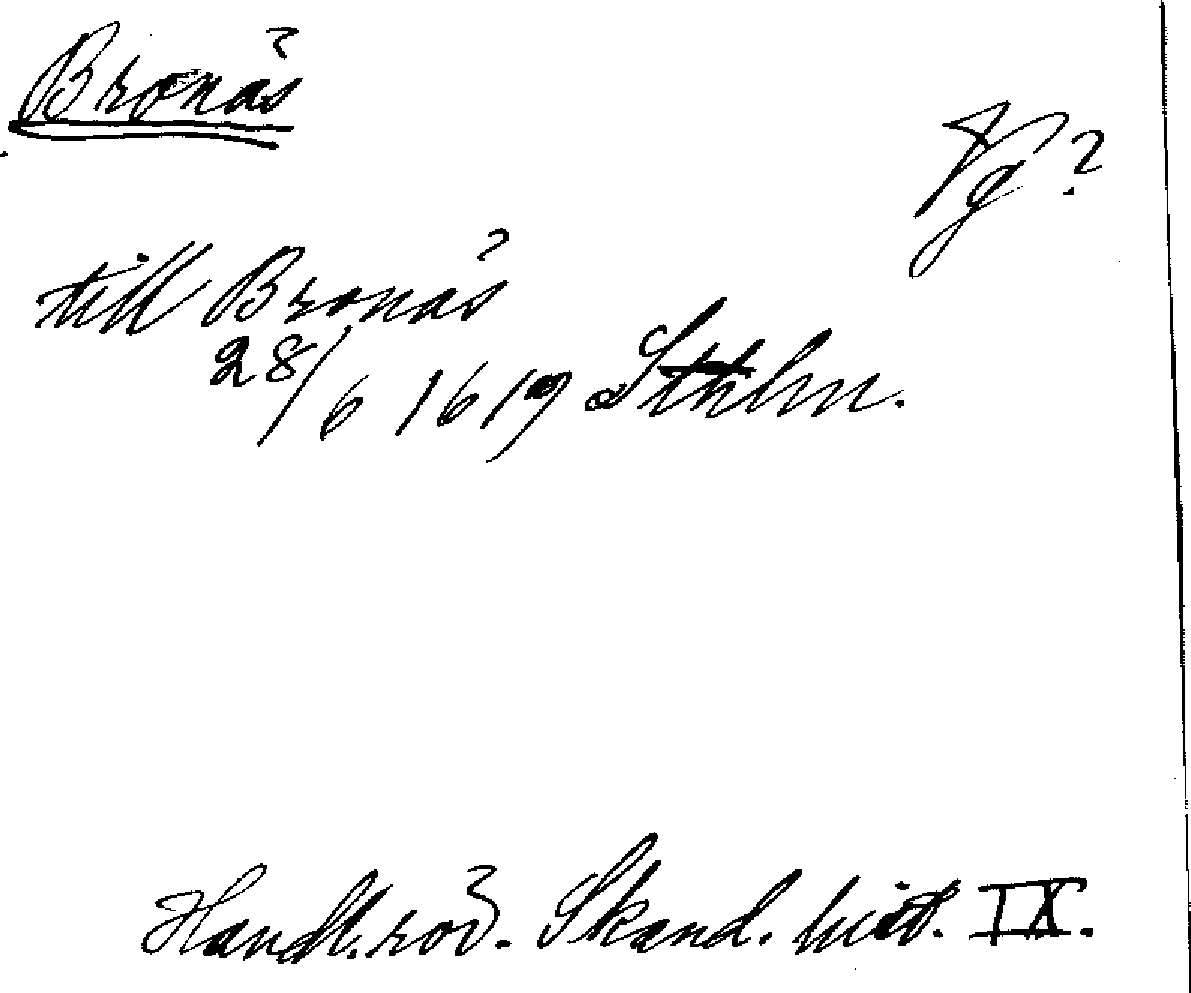 Bronäs
Vg?
till Bronäs
28/6 1619 Sthlm.
Handl. rör. Skand. hist. IX.